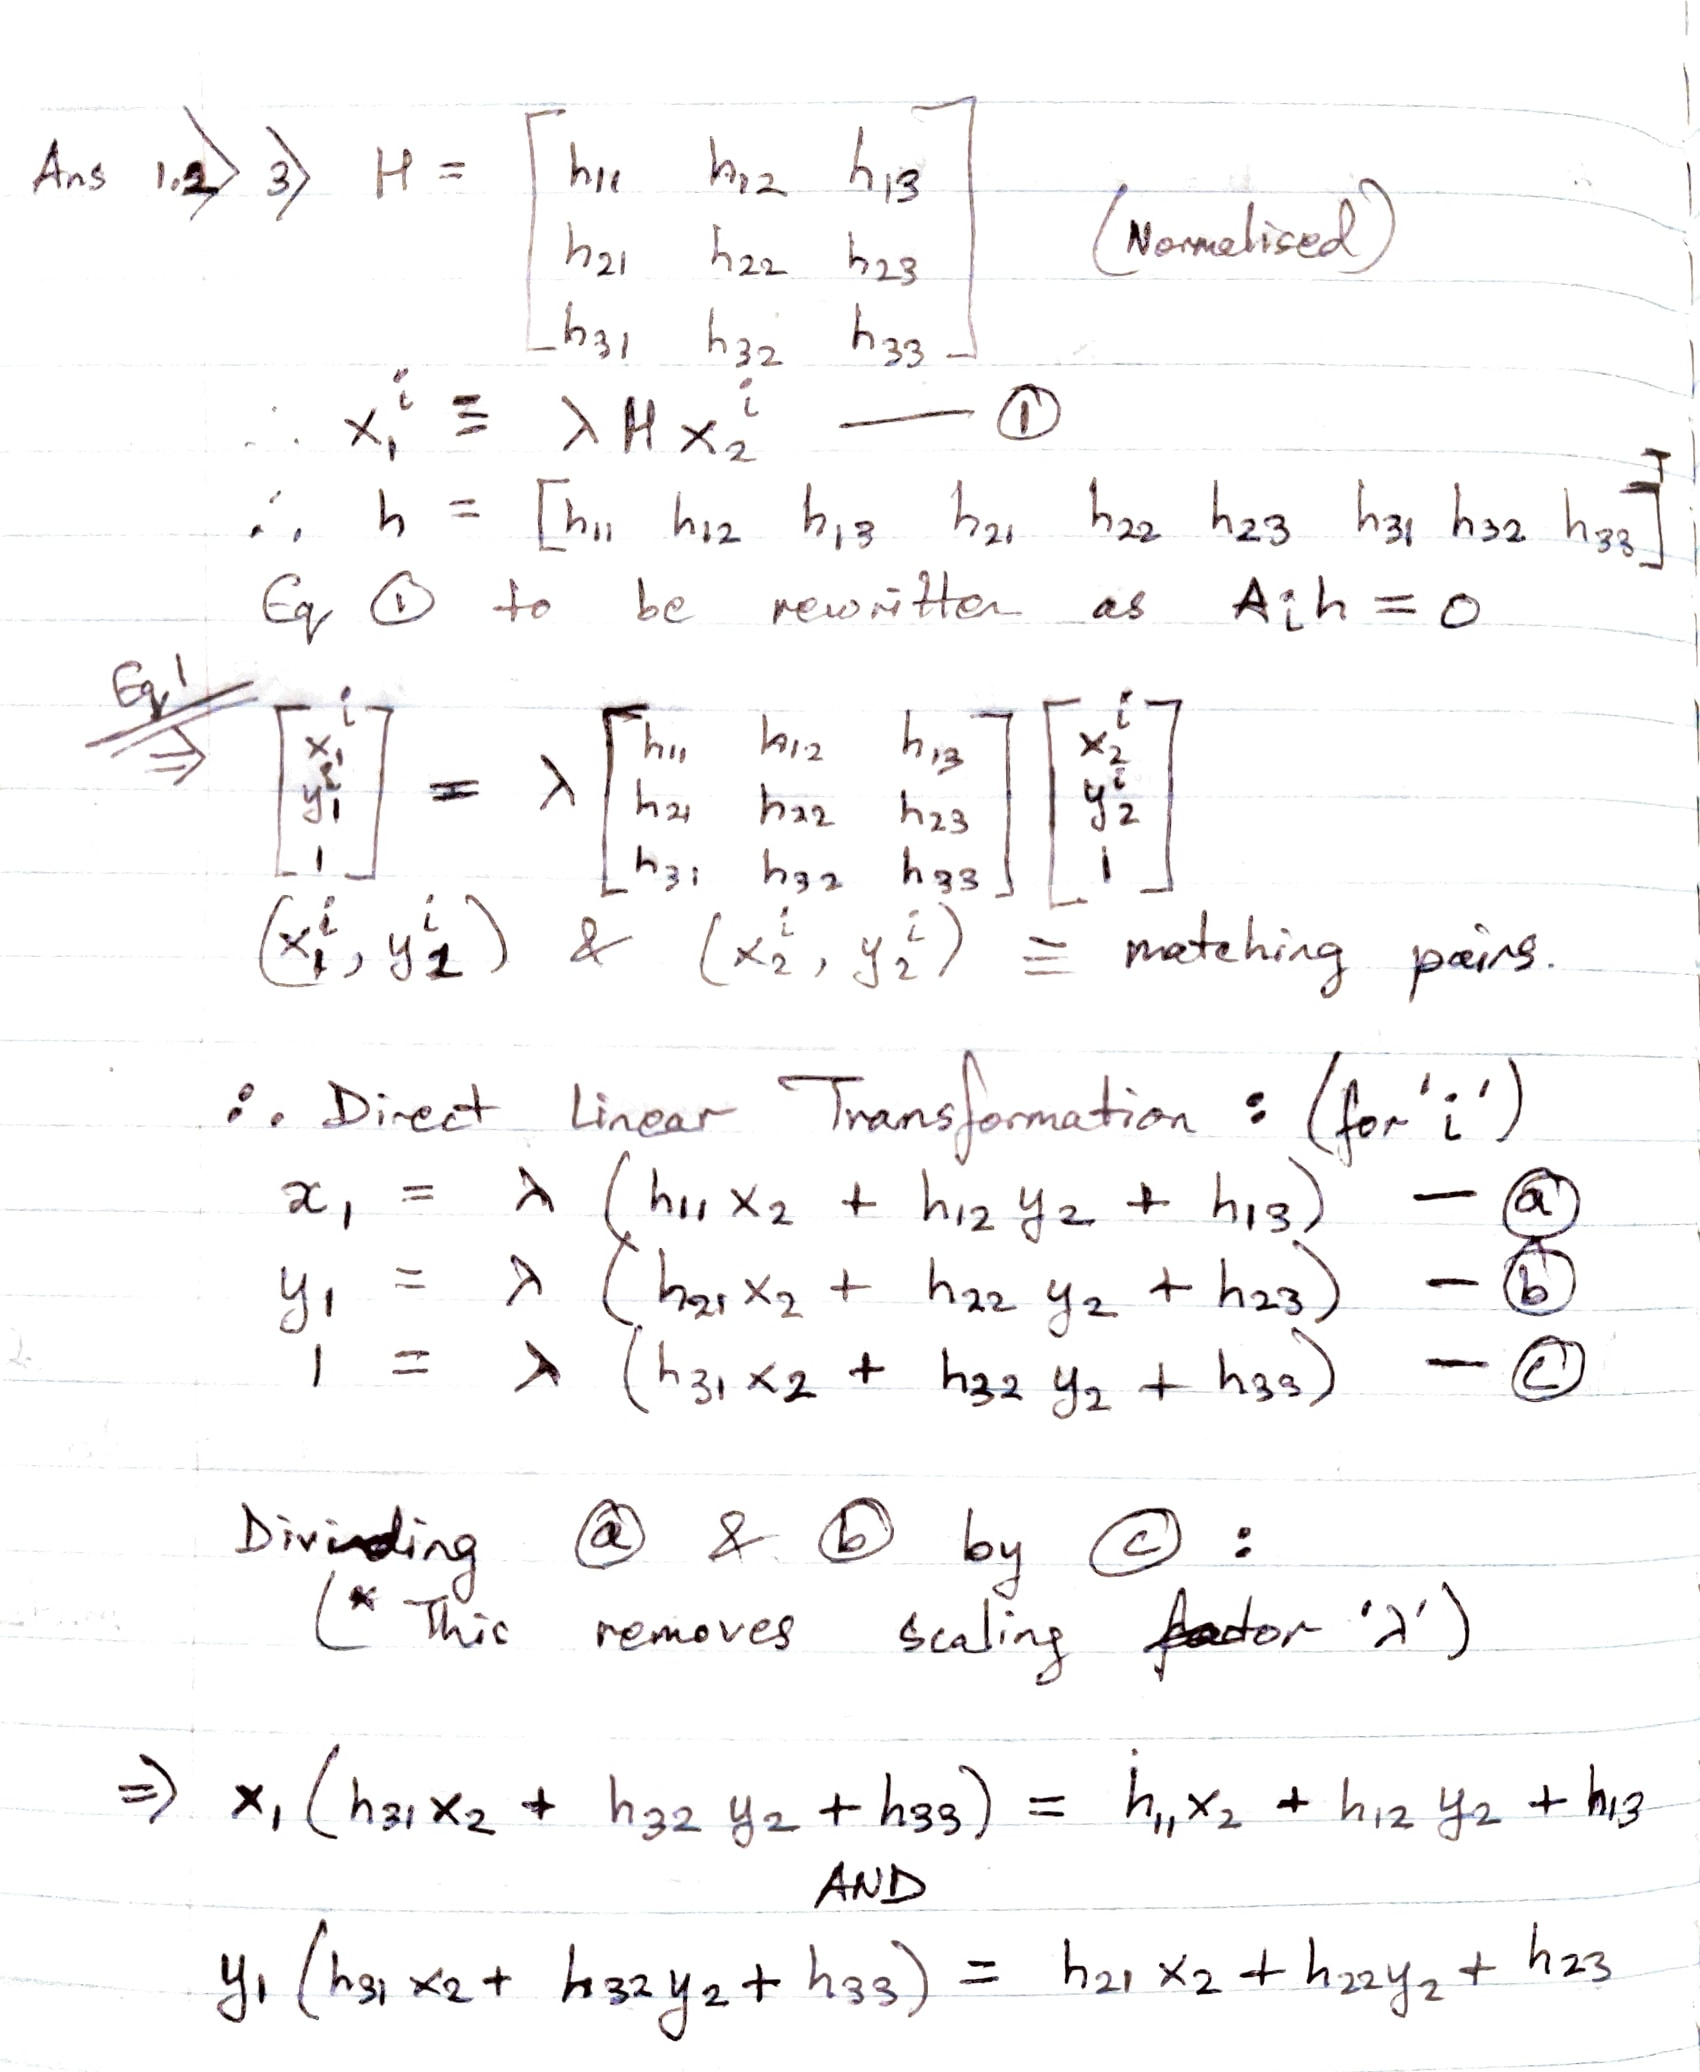 Ans 1.2> 3> H = [ h11 h12 h13 (Normalised)
h21 h22 h23
h31 h32 h33 ]
∴ x₁ⁱ ≡ λ H x₂ⁱ — ①
∴ h = [h11 h12 h13 h21 h22 h23 h31 h32 h33]ᵀ
Eq ① to be rewritten as Aᵢh = 0
Eq 1
⇒ [x₁ⁱ y₁ⁱ 1] = λ [h11 h12 h13 h21 h22 h23 h31 h32 h33] [x₂ⁱ y₂ⁱ 1]
(x₁ⁱ, y₁ⁱ) & (x₂ⁱ, y₂ⁱ) ≡ matching pairs.
∴ Direct Linear Transformation : (for 'i')
x₁ = λ (h11 x₂ + h12 y₂ + h13) — ⓐ
y₁ = λ (h21 x₂ + h22 y₂ + h23) — ⓑ
1 = λ (h31 x₂ + h32 y₂ + h33) — ⓒ
Dividing ⓐ & ⓑ by ⓒ :
(* This removes scaling factor 'λ')
⇒ x₁ (h31 x₂ + h32 y₂ + h33) = h11 x₂ + h12 y₂ + h13
AND
y₁ (h31 x₂ + h32 y₂ + h33) = h21 x₂ + h22 y₂ + h23